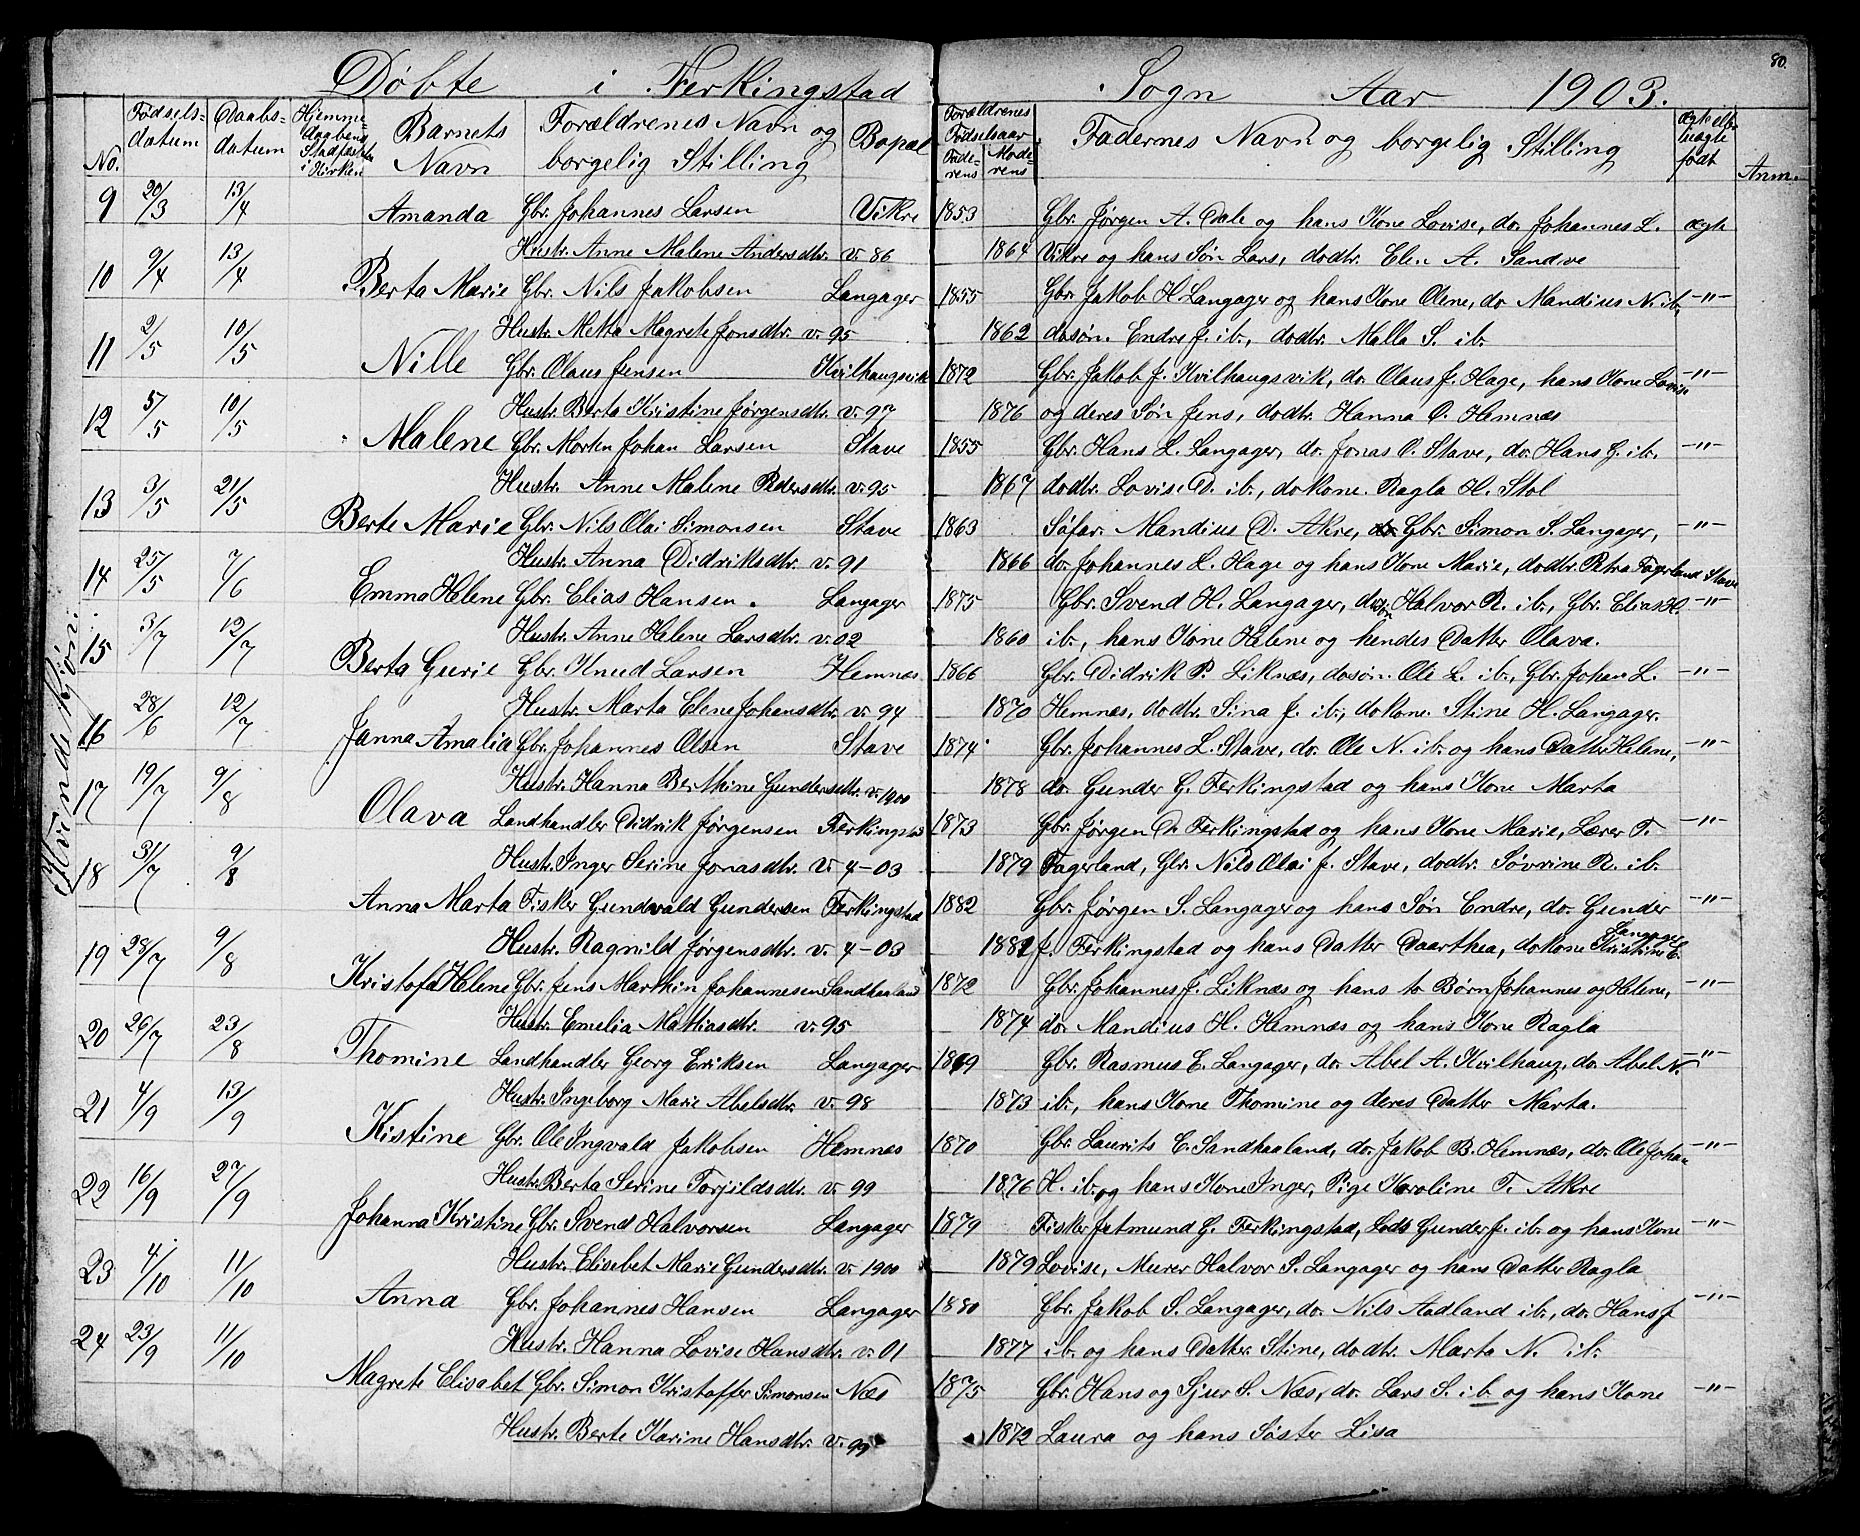 80.
Döbte i Ferkingstad Sogn Aar 1903.
No. Födsels-datum Daabs-datum Hjemme-daabens Stadfæstelse i Kirken Barnets Navn Forældrenes Navn og borgelig Stilling Bopæl Forældrenes Födselsaar Fade-rens Mode-rens Faddernes Navn og borgelig Stilling ægte ell. uægte födt Anm.
Kvindekjön:
9 20/3 13/4 Amanda Gbr. Johannes Larsen Vikre 1853 Gbr. Jörgen A. Dale og hans Kone Lovise, do. Johannes L. ægte
Hustr. Anne Malene Andersdtr. v. 86 1864 Vikre og hans Sön Lars, dodtr. Elen A. Sandve
10 9/4 13/4 Berta Marie Gbr. Nils Jakobsen Langager 1855 Gbr. Jakob H. Langager og hans Kone Olene, do. Mandius N. ib. -"-
Hustr. Metta Magrete Jonsdtr. v. 95 1862 dosön. Endre J. ib., dodtr. Malla S. ib.
11 2/5 10/5 Nille Gbr. Olaus Jensen Kvilhaugsvik 1872 Gbr. Jakob J. Kvilhaugsvik, do. Olaus J. Hage, hans Kone Lovise -"-
Hustr. Berta Kristine Jörgensdtr. v. 97 1876 og deres Sön Jens, dodtr. Hanna O. Hemnæs
12 5/5 10/5 Malene Gbr. Morten Johan Larsen Stave 1855 Gbr. Hans L. Langager, do. Jonas O. Stave, do. Hans J. ib. -"-
Hustr. Anne Malene Pedersdtr. v. 95 1867 dodtr. Lovise D. ib., dokone. Ragla H. Stol
13 3/5 21/5 Berte Marie Gbr. Nils Olai Simonsen Stave 1863 Söfar. Mandius D. Akre, Gbr. Simon S. Langager, -"-
Hustr. Anna Didriksdtr. v. 91 1866 do. Johannes L. Hage og hans Kone Marie, dodtr. Petra Fagerland Stave
14 25/5 7/6 Emma Helene Gbr. Elias Hansen. Langager 1875 Gbr. Svend H. Langager, dosön Halvor R. ib., Gbr. Elias H. -"-
Hustr. Anne Helene Larsdtr. v. 02 1860 ib., hans Kone Helene og hendes Datter Olava.
15 3/7 12/7 Berta Gurie Gbr. Knud Larsen Hemnæs 1866 Gbr. Didrik P. Liknæs, dosön. Ole L. ib., Gbr. Johan L. -"-
Hustr. Marta Elene Johansdtr. v. 94 1870 Hemnæs, dodtr. Sina J. ib., dokone. Stine H. Langager.
16 28/6 12/7 Janna Amalia Gbr. Johannes Olsen Stave 1874 Gbr. Johannes L. Stave, do. Ole N. ib. og hans Datter Helene, -"-
Hustr. Hanna Berthine Gundersdtr. v. 1900 1878 do. Gunder G. Ferkingstad og hans Kone Marta
17 19/7 9/8 Olava Landhandler Didrik Jörgensen Ferkingstad 1873 Gbr. Jörgen D. Ferkingstad og hans Kone Marie, Lærer T. -"-
Hustr. Inger Serine Jonasdtr. v. 4-03 1879 Fagerland, Gbr. Nils Olai J. Stave, dodtr. Sövrine R. ib.
18 31/7 9/8 Anna Marta Fisker Gundvald Gundersen Ferkingstad 1882 Gbr. Jörgen S. Langager og hans Sön Endre, do. Gunder -"-
Hustr. Ragnild Jörgensdtr. v. 4-03 1882 J. Ferkingstad og hans Datter Daarthea, dokone Kristine E. Langager
19 28/7 9/8 Kristofa Helene Gbr. Jens Martin Johannesen Sandhaaland 1872 Gbr. Johannes J. Liknæs og hans to Börn Johannes og Helene, -"-
Hustr. Emelia Mattiasdtr. v. 95 1874 do. Mandius H. Hemnæs og hans Kone Ragla
20 26/7 23/8 Thomine Landhandler Georg Eriksen Langager 1869 Gbr. Rasmus E. Langager, do. Abel A. Kvilhaug, do. Abel N. -"-
Hustr. Ingeborg Marie Abelsdtr. v. 98 1873 ib., hans Kone Thomine og deres Datter Marta.
21 4/9 13/9 Kistine Gbr. Ole Ingvald Jakobsen Hemnæs 1870 Gbr. Laurits C. Sandhaaland, do. Jakob B. Hemnæs, do. Ole Johan -"-
Hustr. Berta Serine Torjildsdtr. v. 99 1876 H. ib. og hans Kone Inger, Pige Karoline T. Akre
22 16/9 27/9 Johanna Kristine Gbr. Svend Halvorsen Langager 1879 Fisker Jatmund G. Ferkingstad, Lods Gunder J. ib. og hans Kone -"-
Hustr. Elisabet Marie Gundersdtr. v. 1900 1879 Lovise, Murer Halvor S. Langager og hans Datter Ragla
23 4/10 11/10 Anna Gbr. Johannes Hansen Langager 1880 Gbr. Jakob S. Langager, do. Nils Aadland ib., do. Hans J. -"-
Hustr. Hanna Lovise Hansdtr. v. 01 1877 ib. og hans Datter Stine, dodtr. Marta N. ib.
24 23/9 11/10 Magrete Elisabet Gbr. Simon Kristoffer Simonsen Næs 1875 Gbr. Hans og Sjur S. Næs, do. Lars S. ib. og hans Kone -"-
Hustr. Berte Karine Hansdtr. v. 99 1872 Laura og hans Söster Lisa